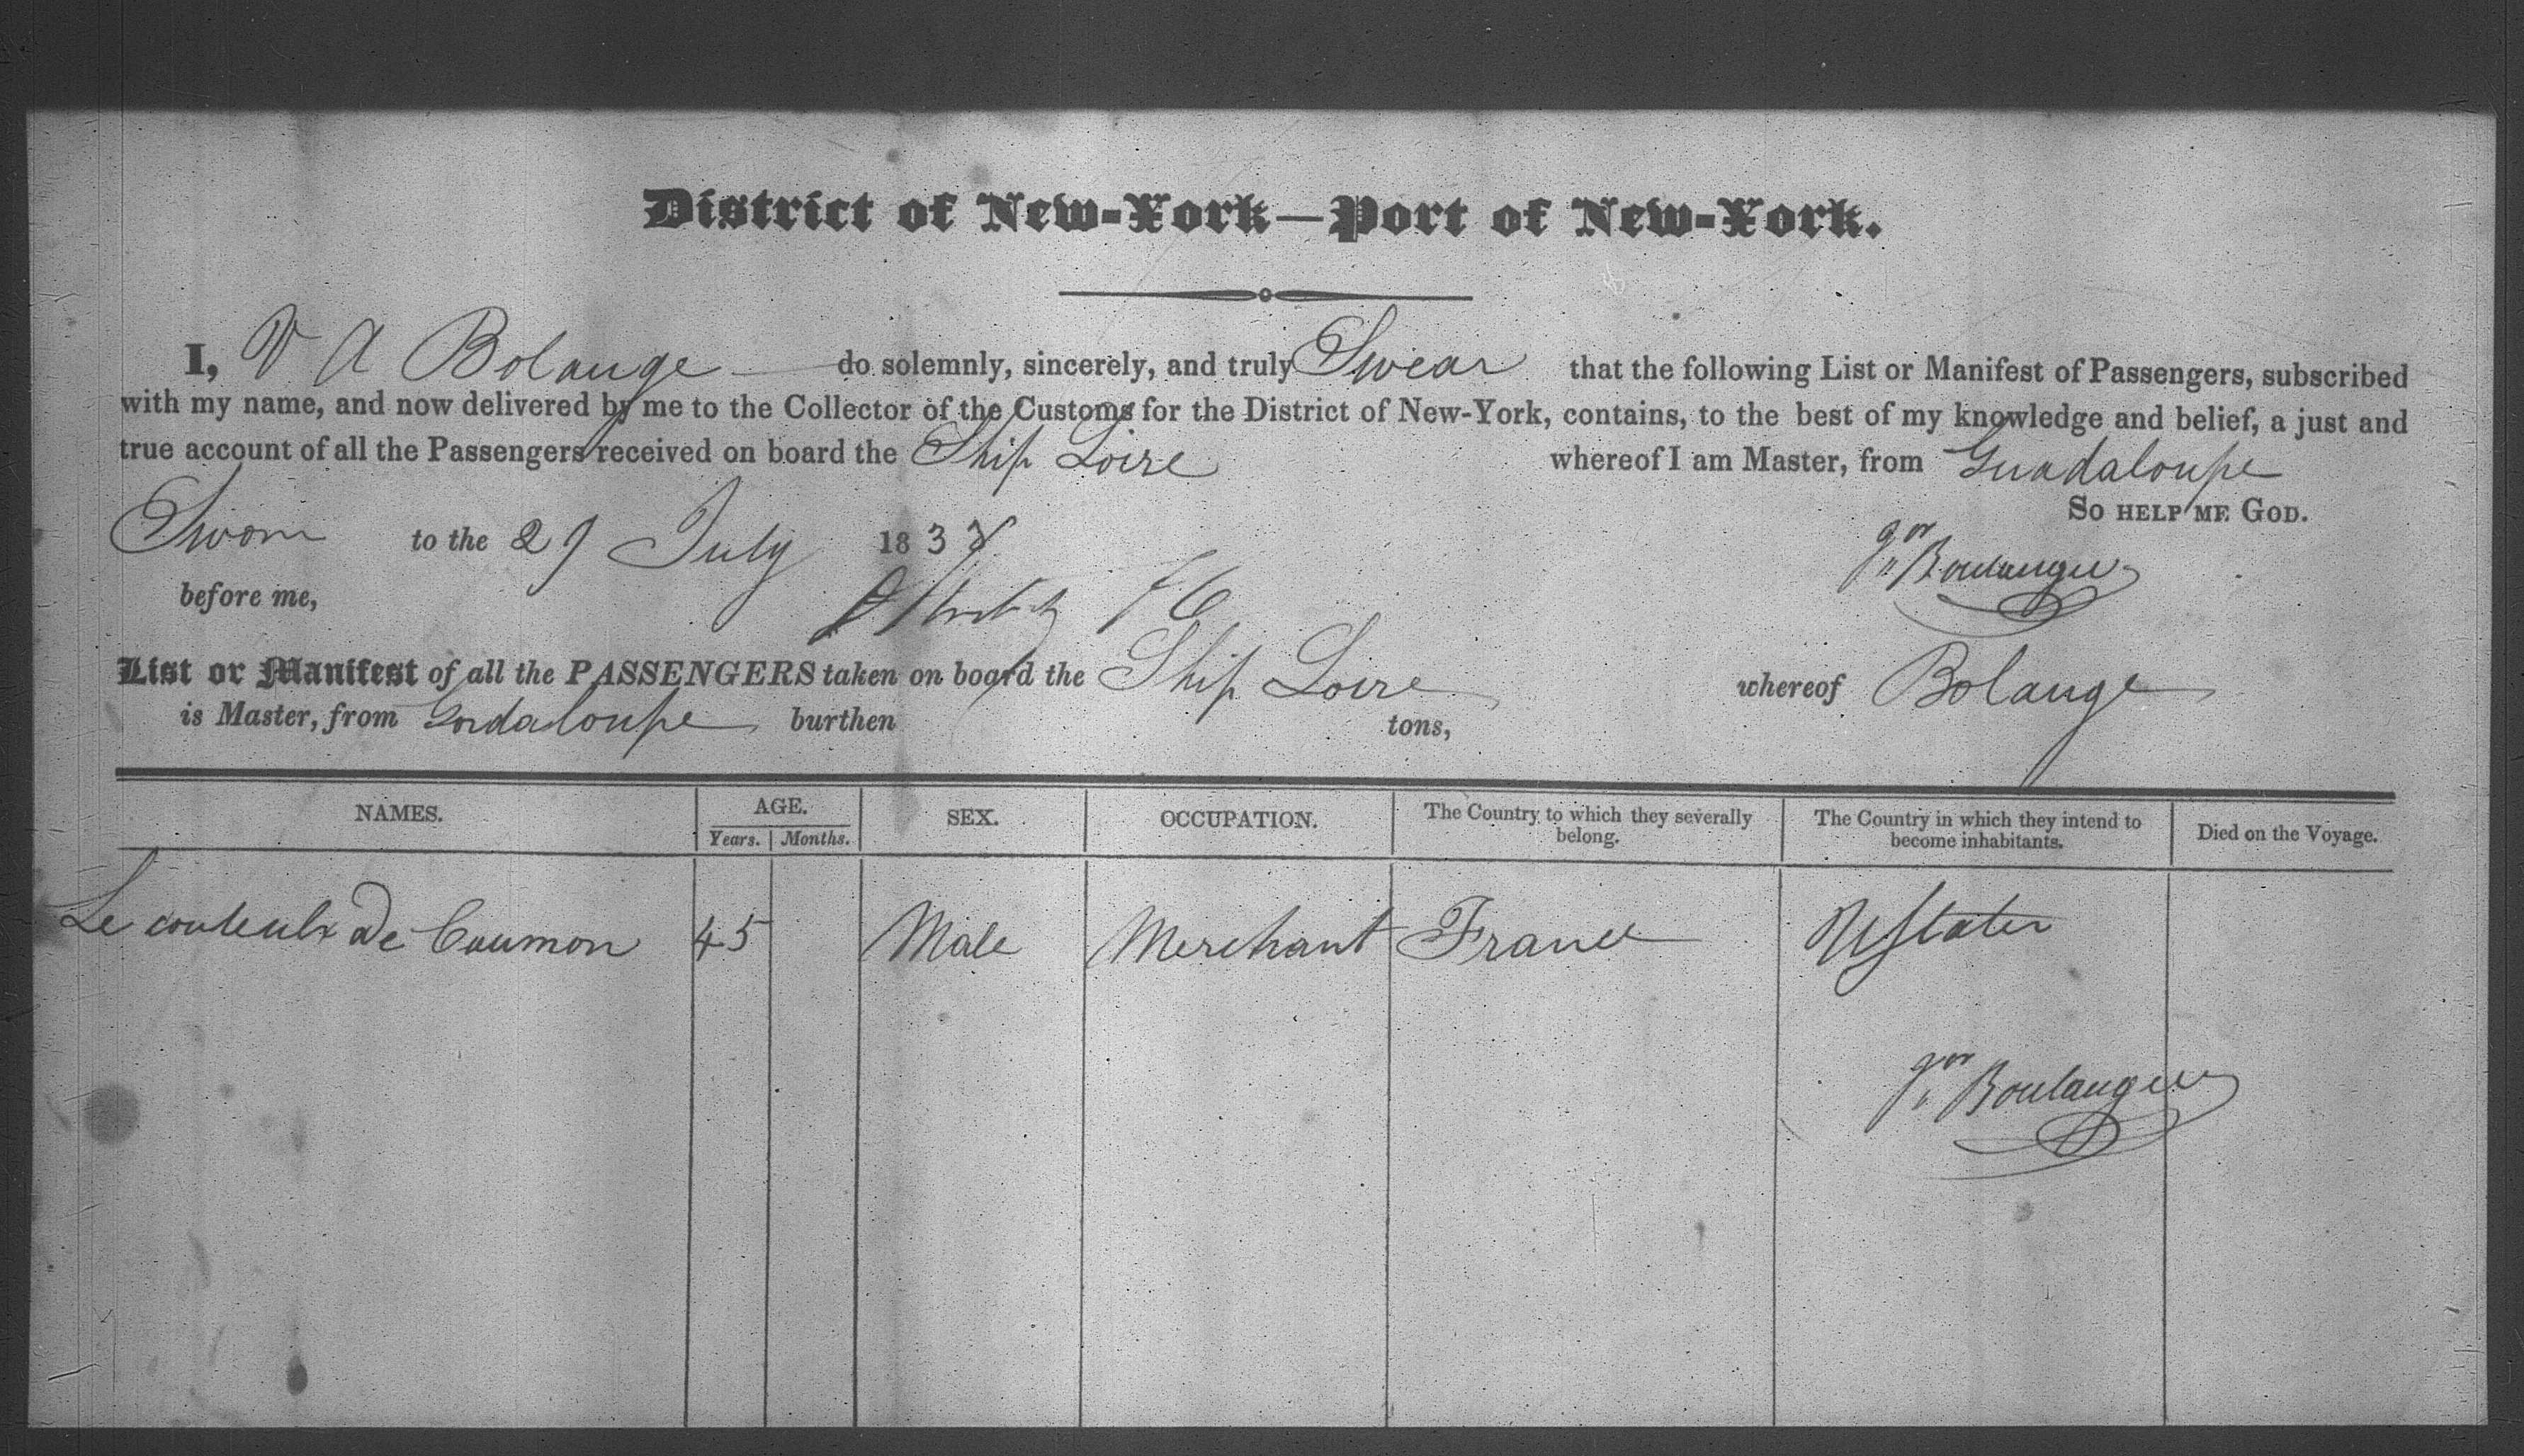 District of New-York—Port of New-York.
I, V A Bolange do solemnly, sincerely, and truly Swear that the following List or Manifest of Passengers, subscribed
with my name, and now delivered by me to the Collector of the Customs for the District of New-York, contains, to the best of my knowledge and belief, a just and
true account of all the Passengers received on board the Ship Loire whereof I am Master, from Guadaloupe
So help me God.
Sworn to the 29 July 183
Boulanger
before me,
List or Manifest of all the PASSENGERS taken on board the Ship Loire whereof Bolange
is Master, from Gordaloupe burthen tons,
NAMES. AGE. SEX. OCCUPATION. The Country to which they severally belong. The Country in which they intend to become inhabitants. Died on the Voyage.
Years. Months.
Le couteulx De Caumon 45 Male Merchant France UStates
Boulanger